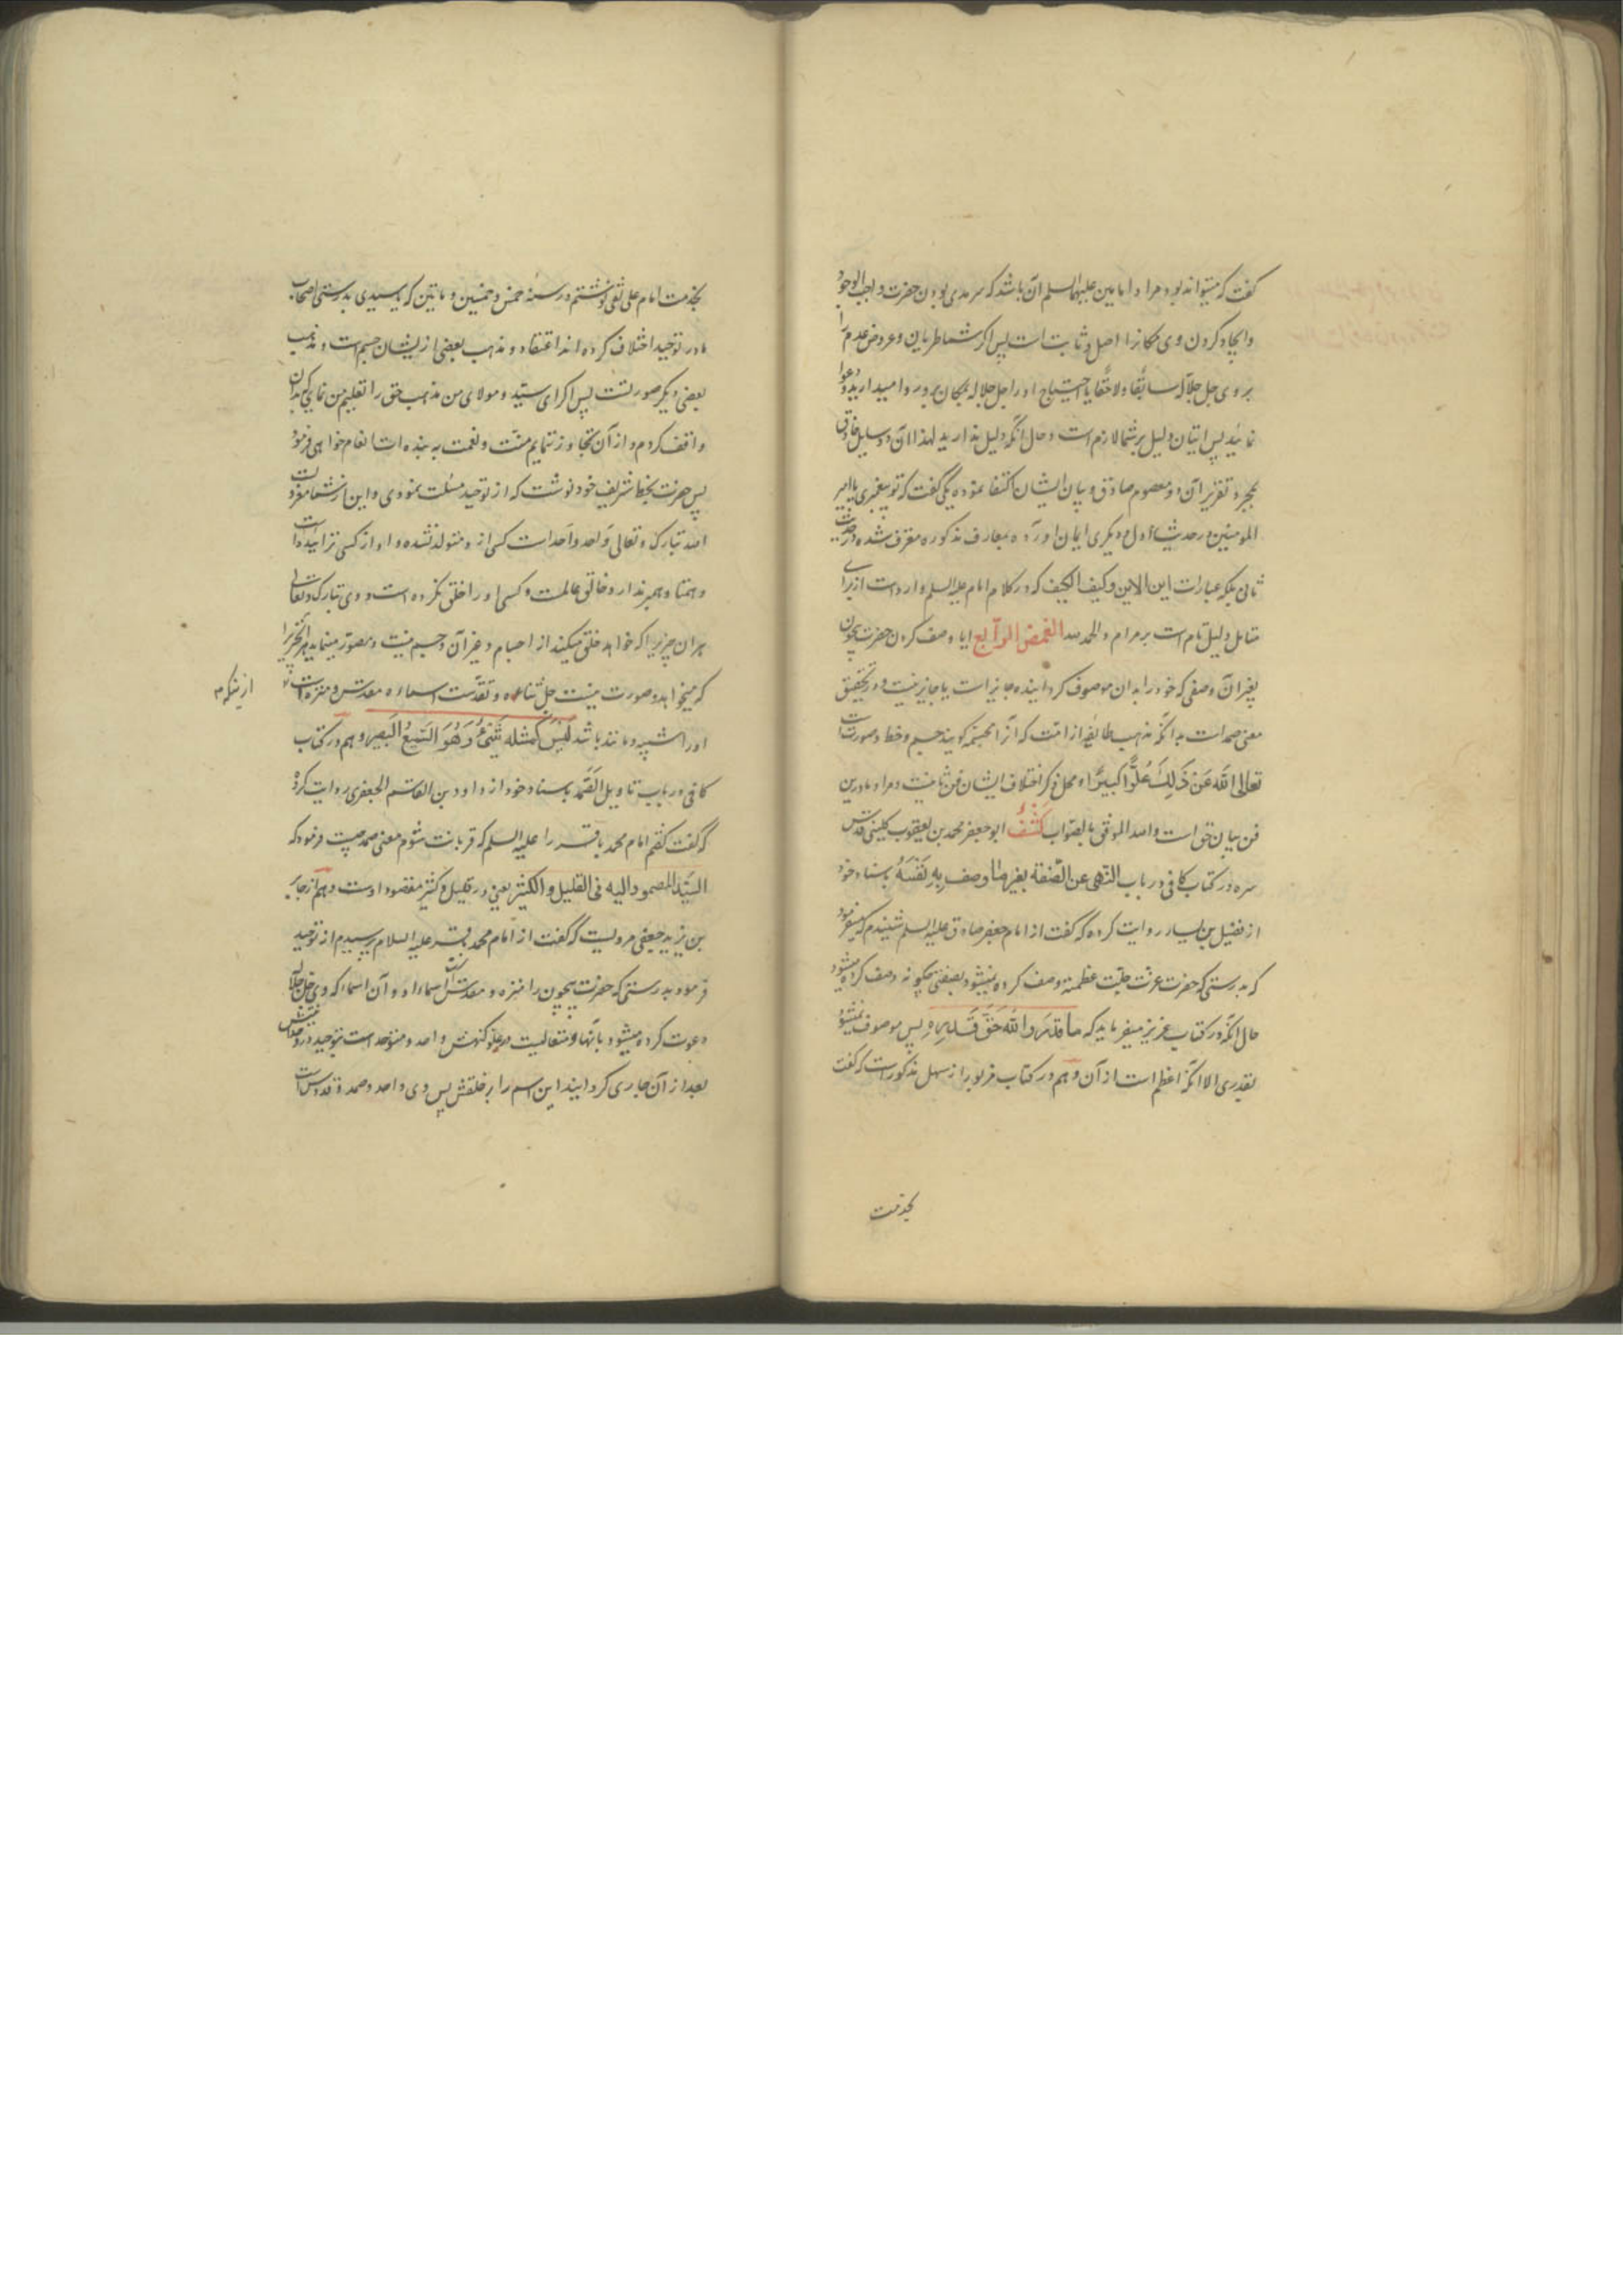 گفت که میتواند بود مراد امامین علیهما السلم آن باشد که سرمدی بودن حضرت واجب الوجود
و ایجاد کردن وی مکانرا اصل و ثابت است پس اگر شما طریان و عروض عدم را
بر وی جل جلاله سابقا و لاحقا یا احتیاج او را جل جلاله بمکان بر وی روا میدارید و دعوا
نمائید پس اتیان دلیل بر شما لازم است و حال آنکه دلیل ندارید لهذا آن دو سایل
بمجرد تقریر آن دو معصوم صادق و بیان ایشان اکتفا نموده یکی گفت که تو پیغمبری یا امیر
المومنین در حدیث اول و دیگری ایمان آورده بمعارف مذکوره معترف شده در حدیث
ثانی بلکه عبارات این الاین و کیف الکیف که در کلام امام علیه السلم وارد است از برای
متامل دلیل تام است بر مرام و الحمد لله الغمض الرابع ایا وصف کردن حضرت بیچون
بغیر آن وصفی که خود را بدان موصوف گردانیده جایز است یا جایز نیست و در تحقیق
معنی صمد است بدانکه مذهب طایفه از امت که آنرا مجسمه گویند جسم و خط و صورت است
تعالی الله عن ذلک علوا کبیرا و محل ذکر اختلاف ایشان فن ثانیست و مراد ما درین
فن بیان حق است و الله الموفق بالصواب کشف ابو جعفر محمد بن یعقوب کلینی قدس
سره در کتاب کافی در باب النهی عن الصفة بغیر ما وصف به نفسه باسناد خود
از فضیل بن یسار روایت کرده که گفت از امام جعفر صادق علیه السلم شنیدم که میفرمود
که بدرستی که حضرت عزت جلت عظمته وصف کرده نمیشود بصفتی چگونه وصف کرده میشود
حال آنکه در کتاب عزیز میفرماید که ما قدروا الله حق قدره پس موصوف نمیشود
بقدری الا آنکه اعظم است از آن و هم در کتاب مزبور از سهل مذکور است که گفت
بخدمت
بخدمت امام علی نقی نوشتم در سنه خمس و خمسین و ماتین که یا سیدی بدرستی اصحاب
ما در توحید اختلاف کرده اند اعتقاد و مذهب بعضی از یشان جسم است و مذهب
بعضی دیگر صورتست پس اگر ای سید و مولای من مذهب حق را تعلیم من نمایی که بدان
واقف گردم و از آن تجاوز ننمایم منت و نعمت به بنده ات انعام خواهی فرمود
پس حضرت بخط شریف خود نوشت که از توحید مسئلت نمودی و این از شما معزولست
الله تبارک و تعالی واحد و احد است کسی از و متولد نشده و او از کسی نزاییده است
و همتا و همسر ندارد و خالق عالمست و کسی او را خلق نکرده است و وی تبارک و تعالی
هر آن چیزیرا که خواهد خلق میکند از اجسام و غیر آن و جسم نیست و مصور مینماید هر آنچیزیرا
که میخواهد و صورت نیست جل ثناءه و تقدست اسماءه مقدس و منزه است
از ینکه م
او را شبیه و مانند باشد لیس کمثله شیء و هو السمیع البصیر و هم در کتاب
کافی در باب تاویل الصمد باسناد خود از داود بن القاسم الجعفری روایت کرده
که گفت گفتم امام محمد باقر را علیه السلم که قربانت شوم معنی صمد چیست فرمود که
السید المصمود الیه فی القلیل و الکثیر یعنی در قلیل و کثیر مقصود اوست و هم از جابر
بن یزید جعفی مرویست که گفت از امام محمد باقر علیه السلام پرسیدم از توحید
فرمود بدرستی که حضرت بیچون را منزه و مقدس است اسماء او و آن اسماء که وی جل جلاله
دعوت کرده میشود بآنها و متعالیست در علو کنهش واحد و متوحد است بتوحید در
بعد از آن جاری گردانید این اسم را بر خلقش پس وی واحد و صمد و قدوس است